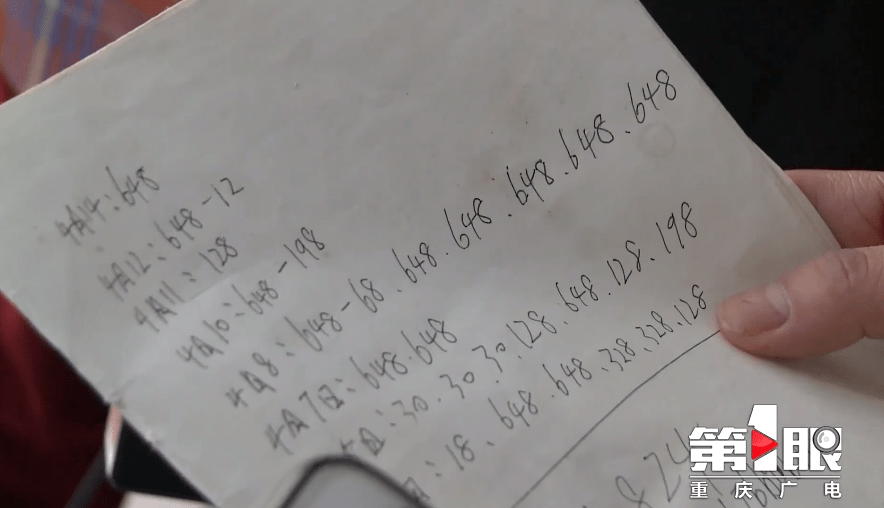 4月14:648
4月12:648-12
4月11:128
4月10:648-198
4月8:648-68.648.648.648.648.648
4月7日:648.648
日:30.30.30.128.648.128.198
:18、648.648.328.328.128
824
第1眼
重庆广电